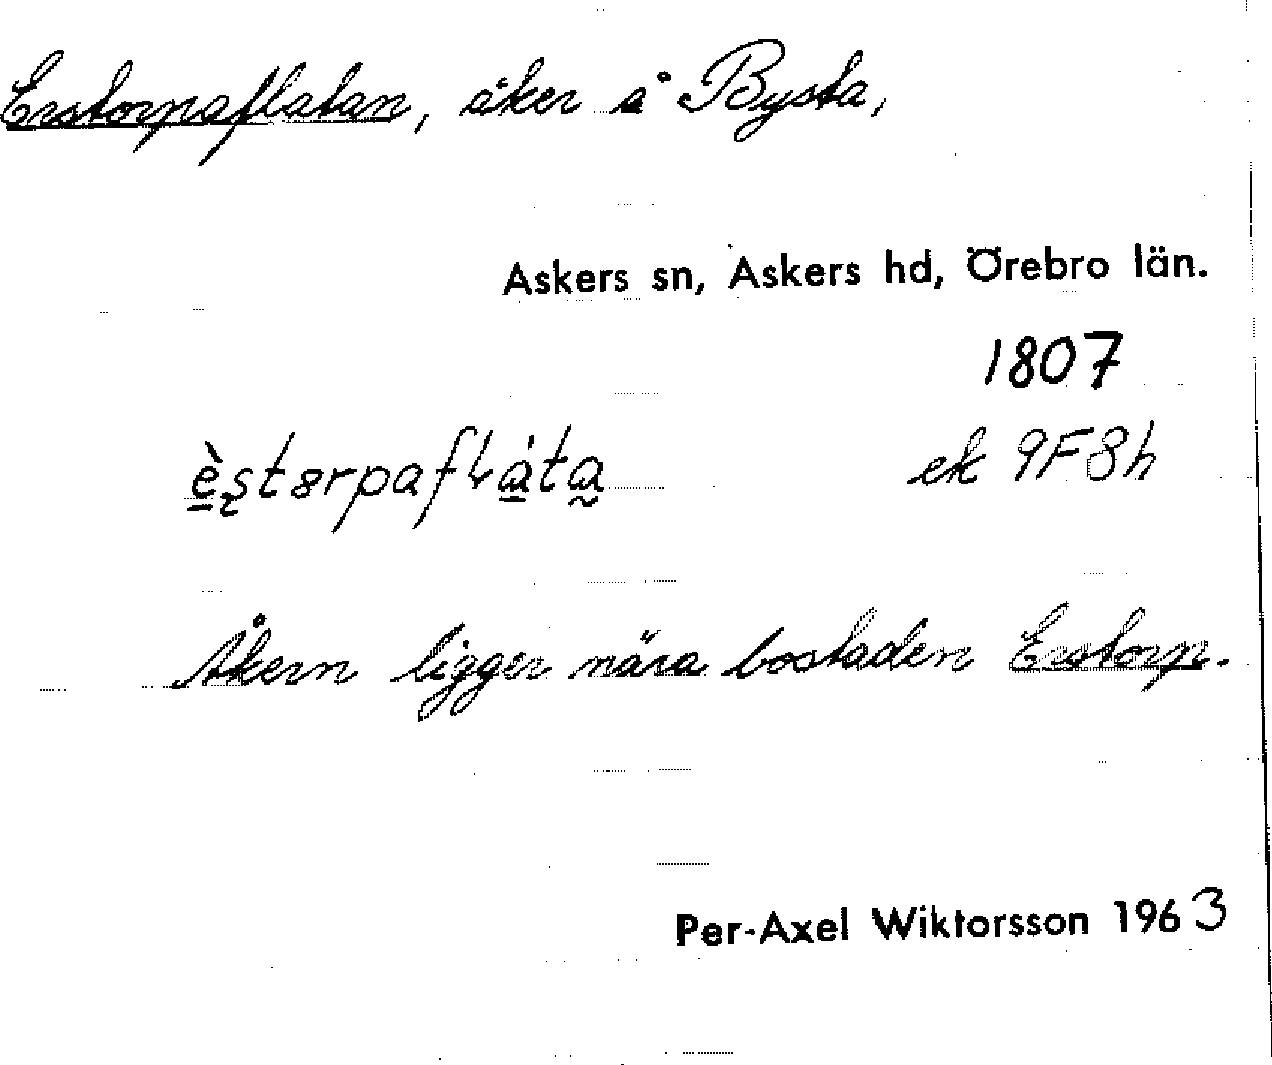 Erstorpaflatan, åker å Bysta,
Askers sn, Askers hd, Örebro län.
1807
ek 9F8h
Åkern ligger nära bostaden Erstorp.
Per-Axel Wiktorsson 1963